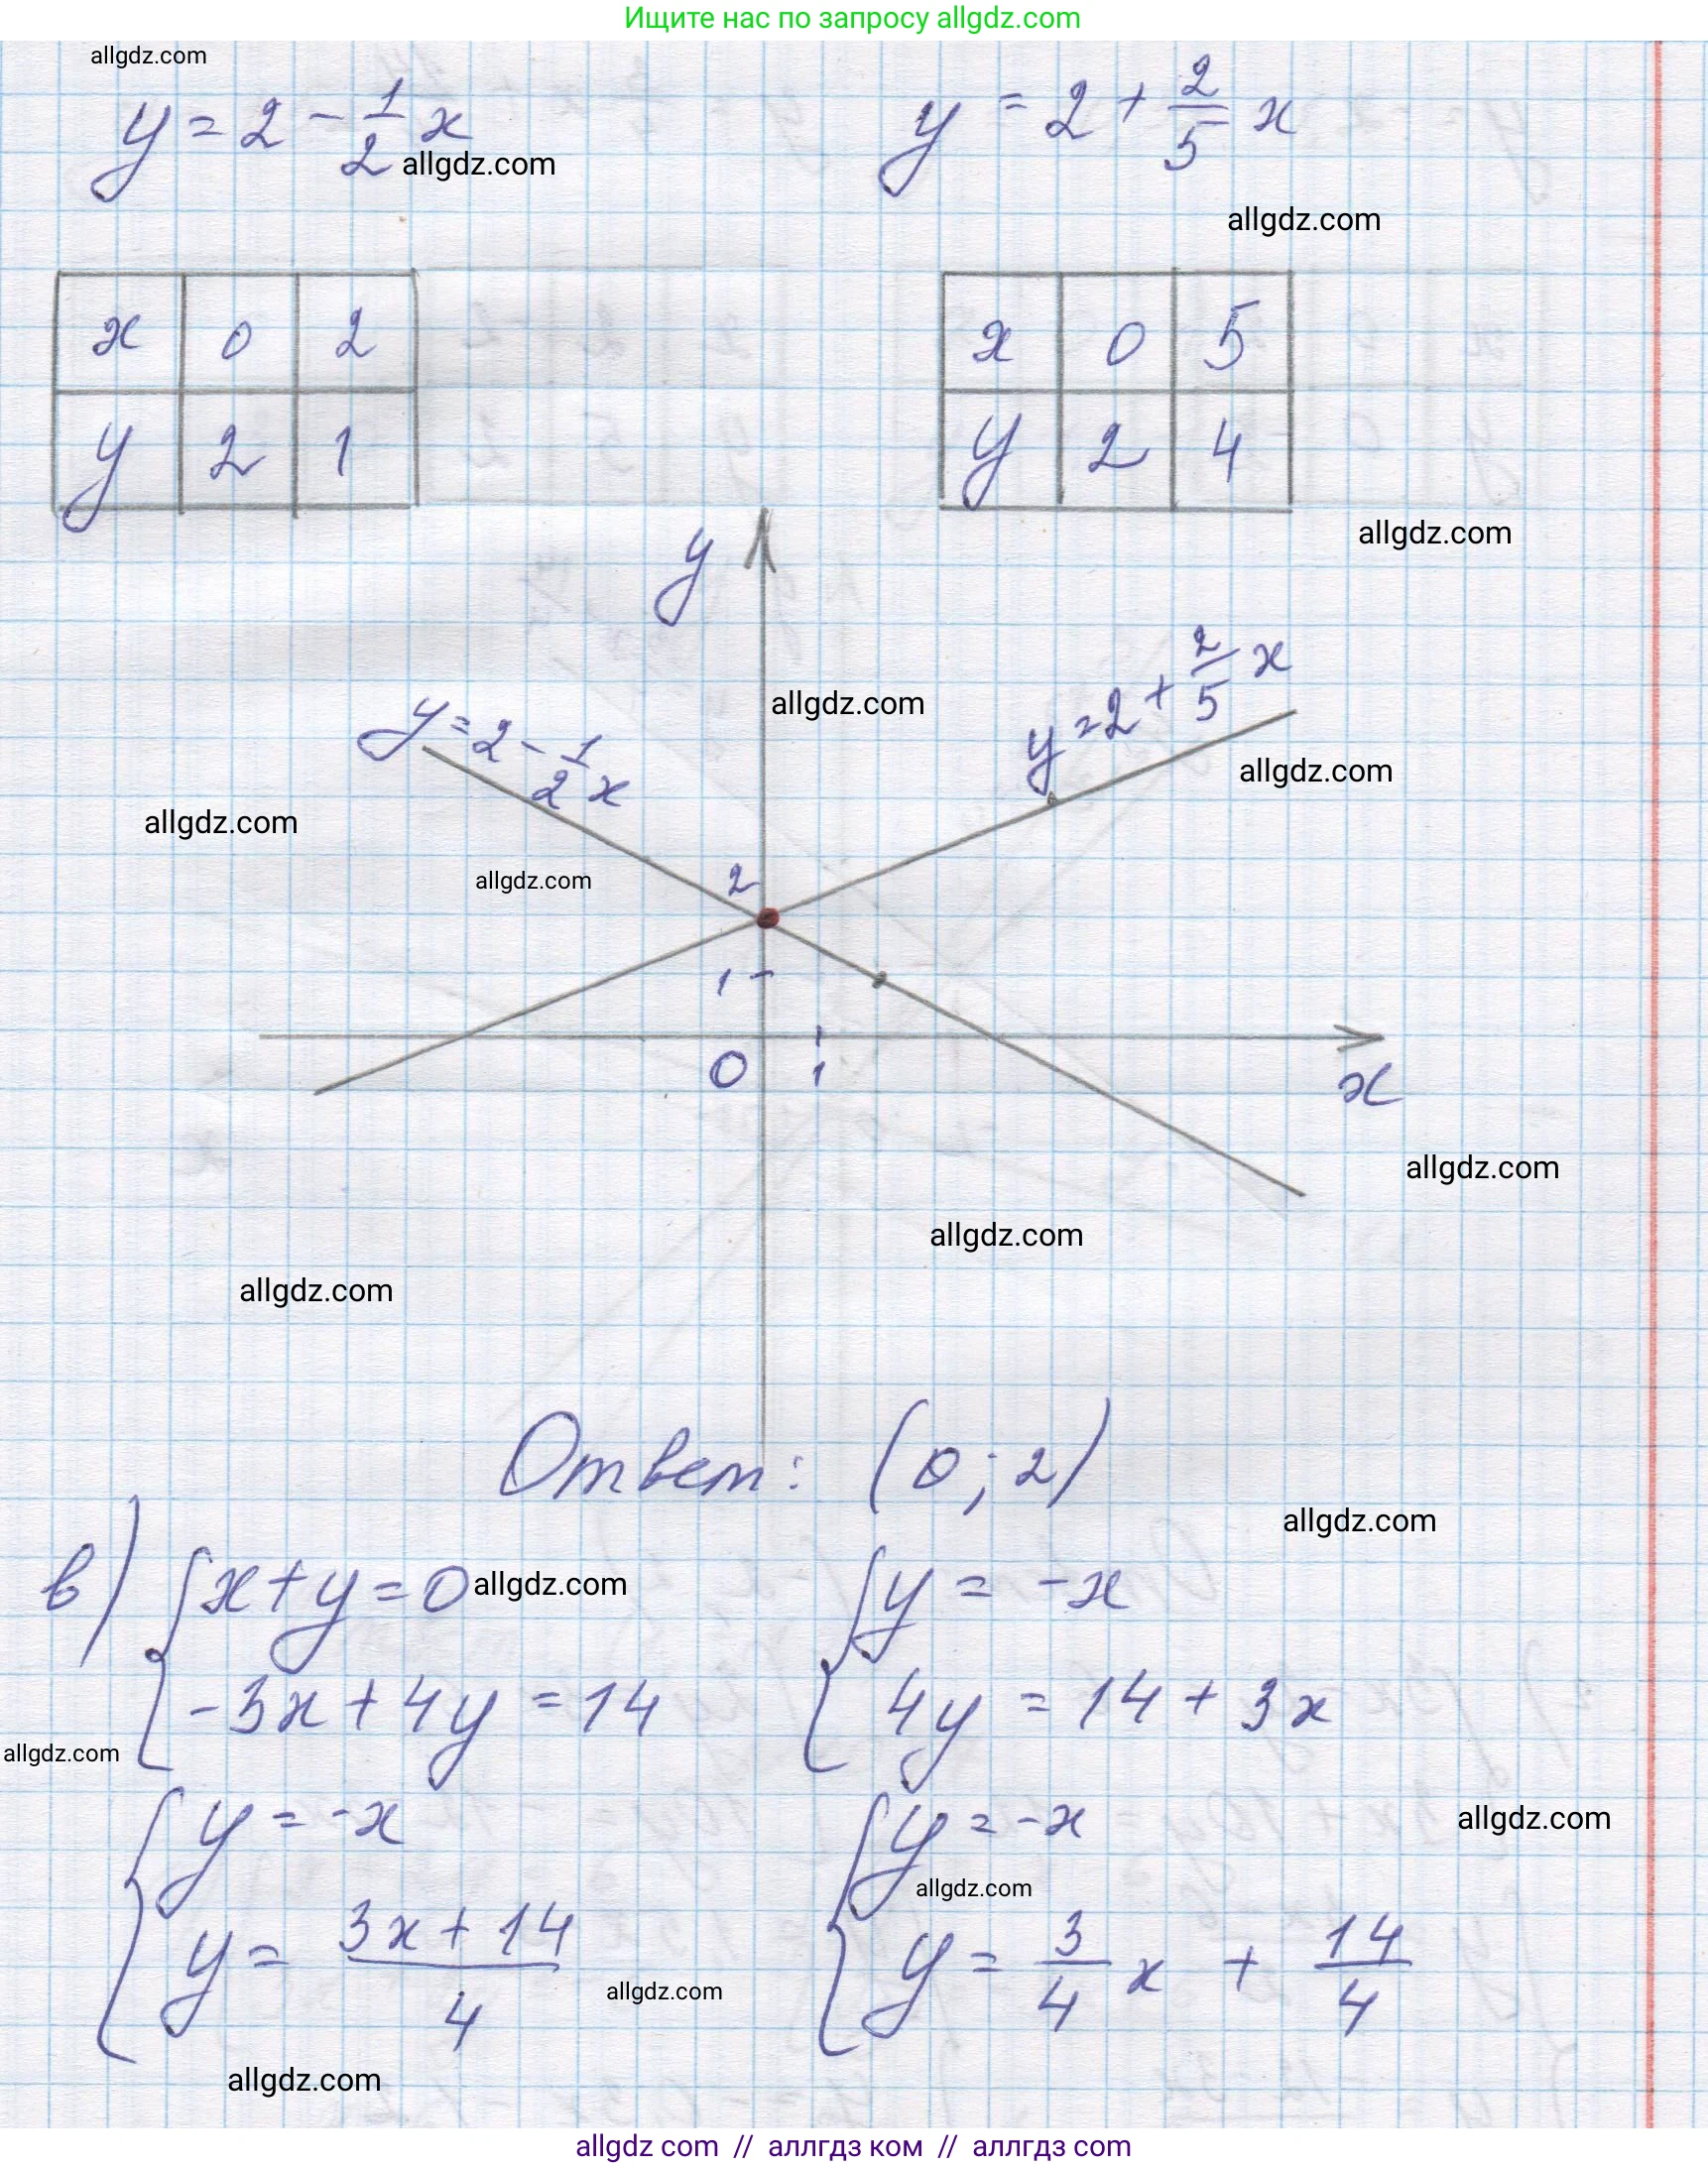 Ищите нас по запросу allgdz.com
allgdz.com
y = 2 - 1/2 x
y = 2 + 2/5 x
allgdz.com
allgdz.com
x 0 2
x 0 5
y 2 1
y 2 4
allgdz.com
y
y = 2 + 2/5 x
allgdz.com
y = 2 - 1/2 x
allgdz.com
allgdz.com
allgdz.com
2
1
0 1
x
allgdz.com
allgdz.com
allgdz.com
Ответ: (0; 2)
allgdz.com
в) { x + y = 0
allgdz.com
-3x + 4y = 14
{ y = -x
4y = 14 + 3x
allgdz.com
{ y = -x
y = (3x + 14)/4
{ y = -x
y = 3/4 x + 14/4
allgdz.com
allgdz.com
allgdz.com
allgdz.com
allgdz com // аллгдз ком // аллгдз com